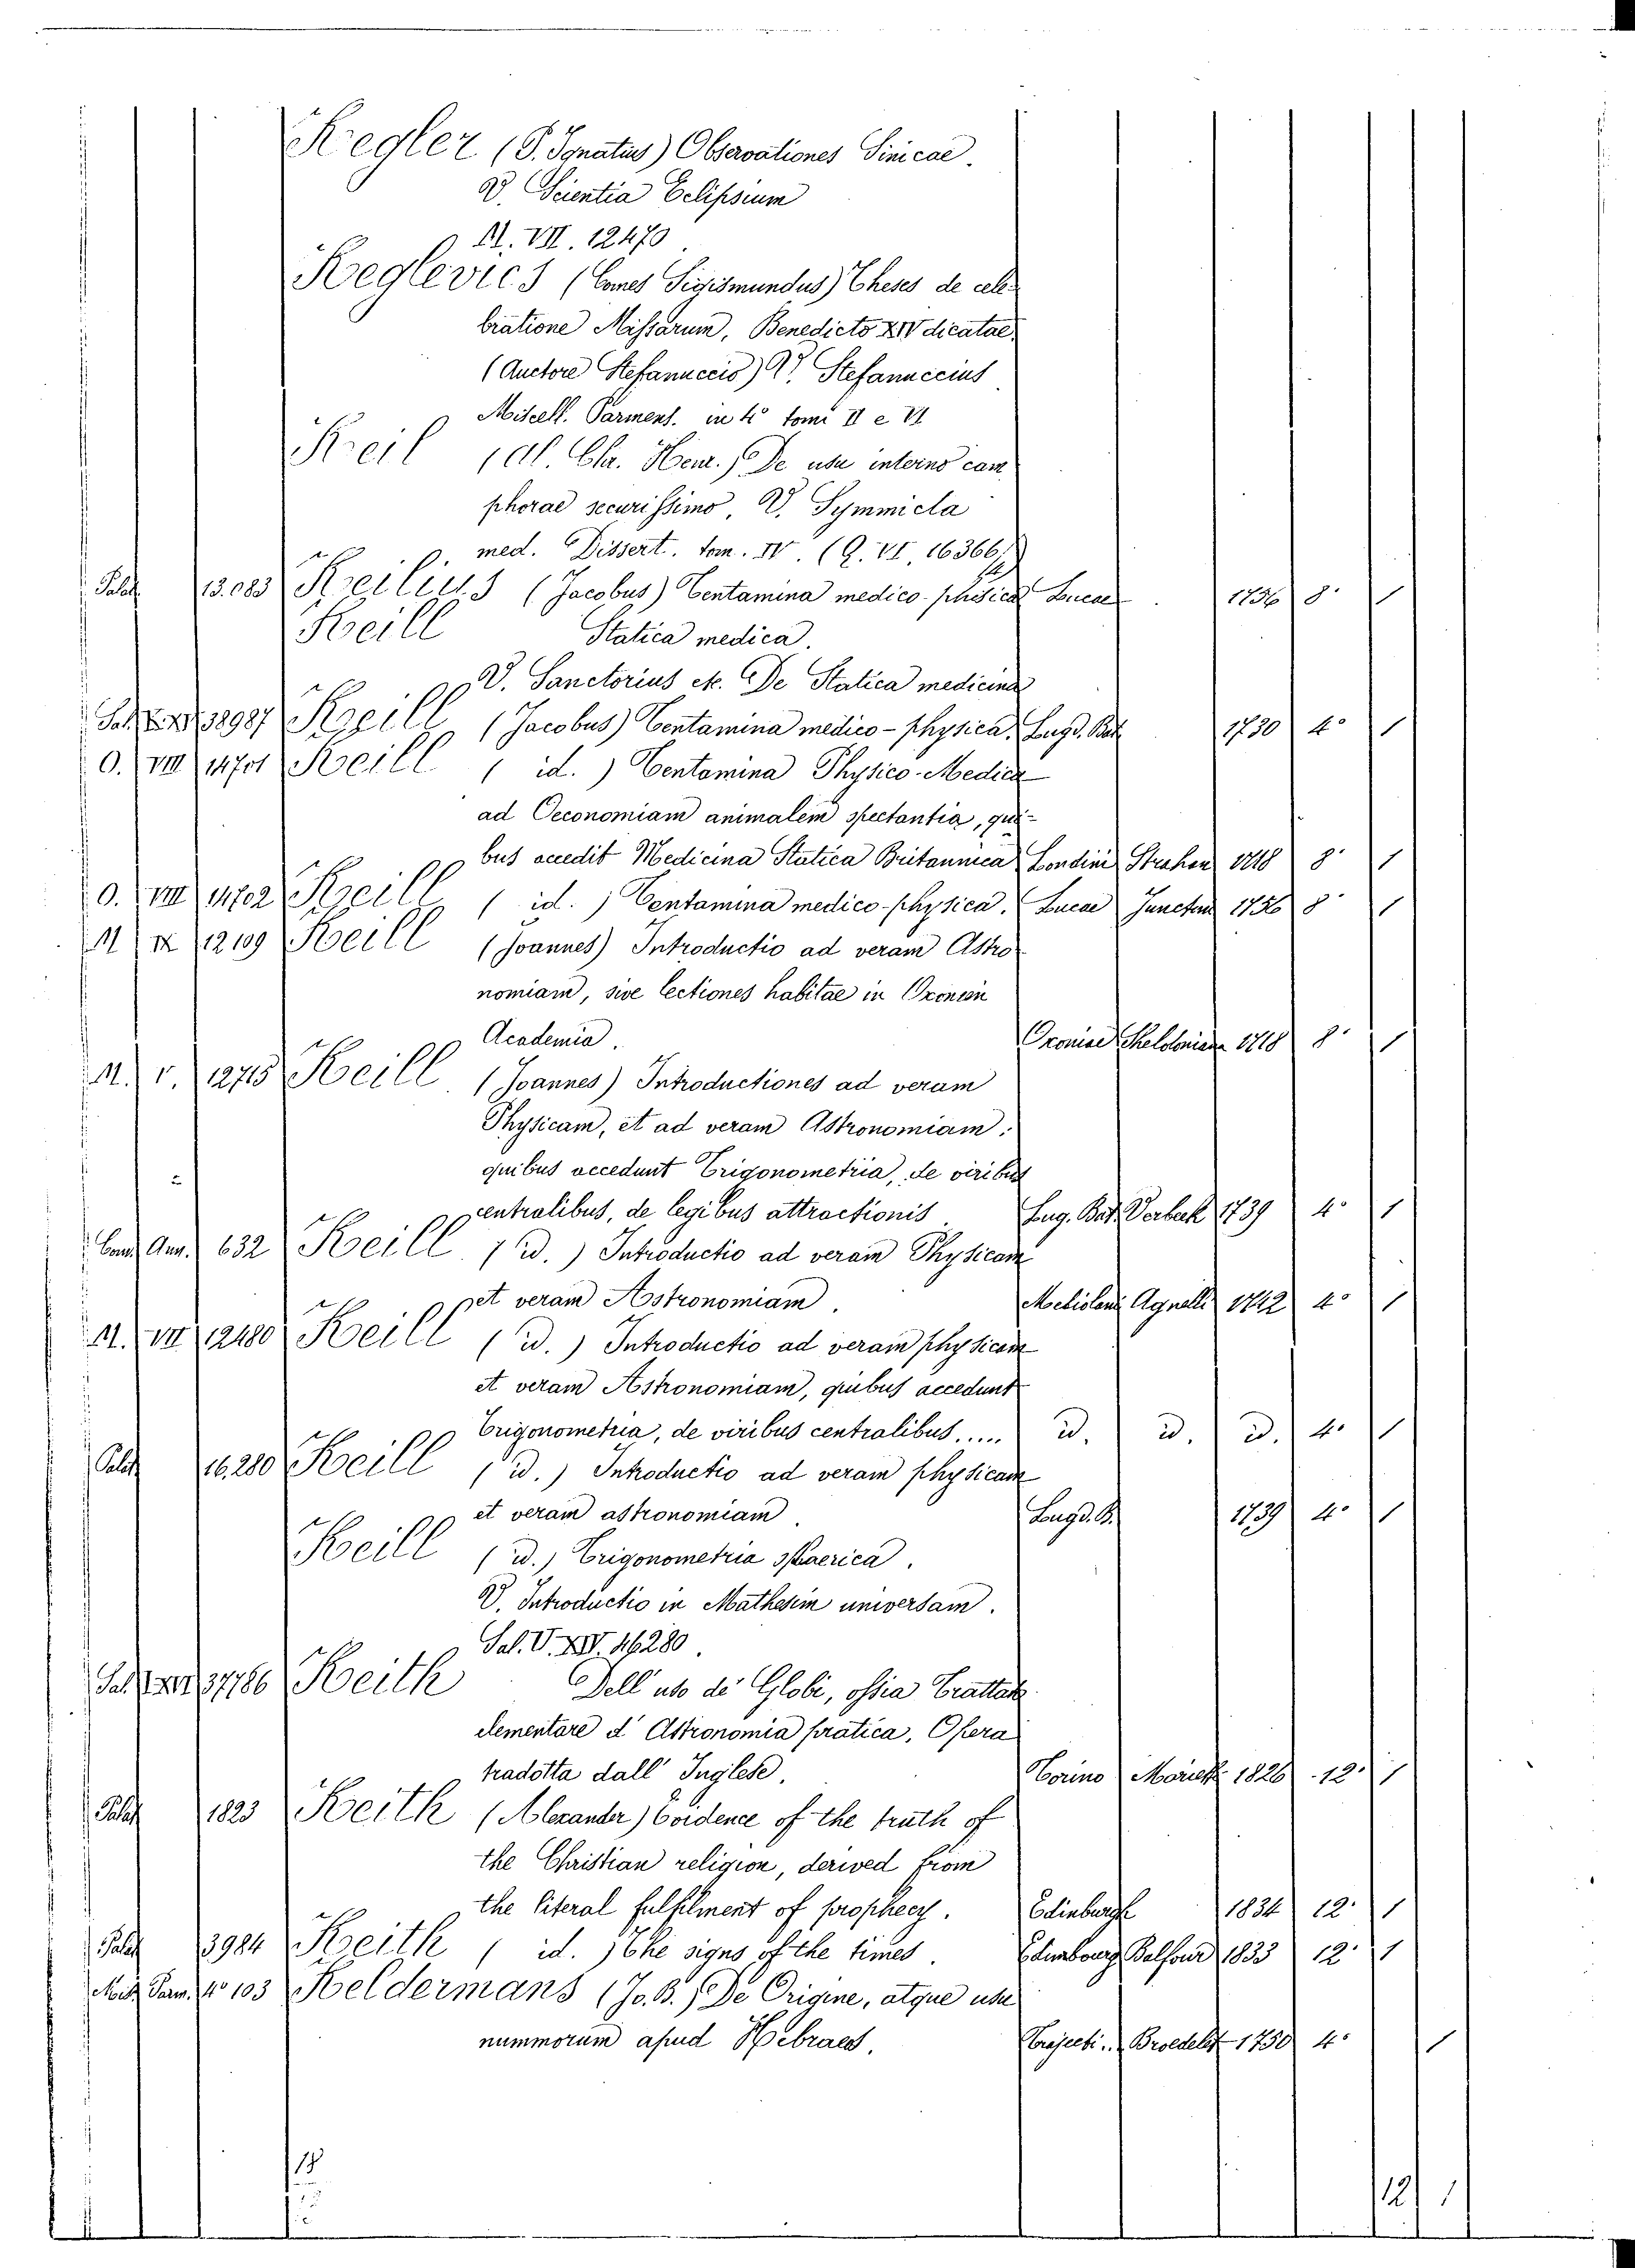 Kegler (P. Ignatius) Observationes Sinicae.
V. Scientia Eclipsium
M. VII. 12470
Keglevics (Comes Sigismundus) Theses de cele
bratione Missarum, Benedicto XIV dicatae
(Auctore Stefanuccio) V. Stefanuccius
Miscell. Parmens. in 4° tomi II e VI
Keil (A. Chr. Henr.) De usu interno cam
phorae securissimo, V. Symmicta
med. Dissert. tom. IV. (Q. VI 16366/
Palat 13.083 Keilius (Jacobus) Tentamina medico-phisica Lucae 1756 8° 1
Keill Statica medica.
V. Sanctorius etc. De Statica medicina
Sal. 38987 Keill (Jacobus) Tentamina medico-physica, Lugd. Bat. 1730 4° 1
O. VIII 14701 Keill (id.) Tentamina Physico-Medica
ad Oeconomiam animalem spectantia, qui-
bus accedit Medicina Statica Britannica Londini Strahan 1718 8° 1
O. VIII 14702 Keill (id.) Tentamina medico-physica. Lucae Junctin 1756 8° 1
M IX 12109 Keill (Joannes) Introductio ad veram Astro
nomiam, sive lectiones habitae in Oxonien
Academia. Oxoniae Sheldoniana 1718 8° 1
M. V. 12715 Keill (Joannes) Introductiones ad veram
Physicam, et ad veram Astronomiam:
quibus accedunt Trigonometria, de viribus
centralibus, de legibus attractionis. Lug. Bat. Verbeek 1739 4° 1
Ann. 632 Keill (id.) Introductio ad veram Physicam
et veram Astronomiam. Mediolani Agnelli 1742 4° 1
M. VII 12480 Keill (id.) Introductio ad veram physicam
et veram Astronomiam, quibus accedunt
Trigonometria, de viribus centralibus..... id. id. id. 4° 1
Palat 16.280 Keill (id.) Introductio ad veram physicam
et veram astronomiam. Lugd. B. 1739 4° 1
Keill (id.) Trigonometria sphaerica.
V. Introductio in Mathesim universam.
Sal. V. XIV. 16280.
Sal. 37786 Keith Dell'uso de' Globi, ossia Trattato
elementare d'Astronomia pratica, Opera
tradotta dall'Inglese. Torino Morietti 1826 12° 1
Palat 1823 Keith (Alexander) Evidence of the truth of
the Christian religion, derived from
the literal fulfilment of prophecy. Edinburgh 1834 12° 1
Palat 3984 Keith (id.) The signs of the times. Edimbourg Balfour 1833 12° 1
Parm. 4° 103 Keldermans (Jo. B.) De Origine, atque usu
nummorum apud Hebraeos. Trajecti.. Broedelet 1750 4° 1
18
12 1